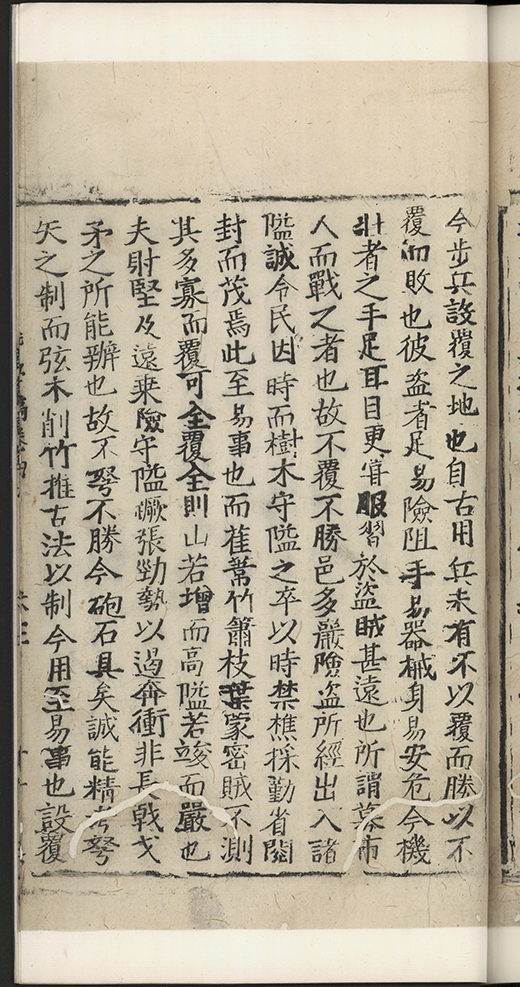 今步兵設覆之地也自古用兵未有不以覆而勝以不
覆而敗也彼盜者足易險阻手易器械身易安危今機
壯者之手足耳目更嘗服習於盜賊甚遠也所謂募市
人而戰之者也故不覆不勝邑多巖險盜所經出入諸
隘誠令民因時而樹木守隘之卒以時禁樵採勤省閱
封而茂焉此至易事也而萑蒿竹簫枝葉蒙密賊不測
其多寡而覆可全覆全則山若增而高隘若竣而嚴也
夫財堅及遠乗險守隘蹶張勁勢以遏奔衝非長戟戈
矛之所能辦也故不弩不勝今砲石具矣誠能精考弩
矢之制而弦木削竹推古法以制今用至易事也設覆